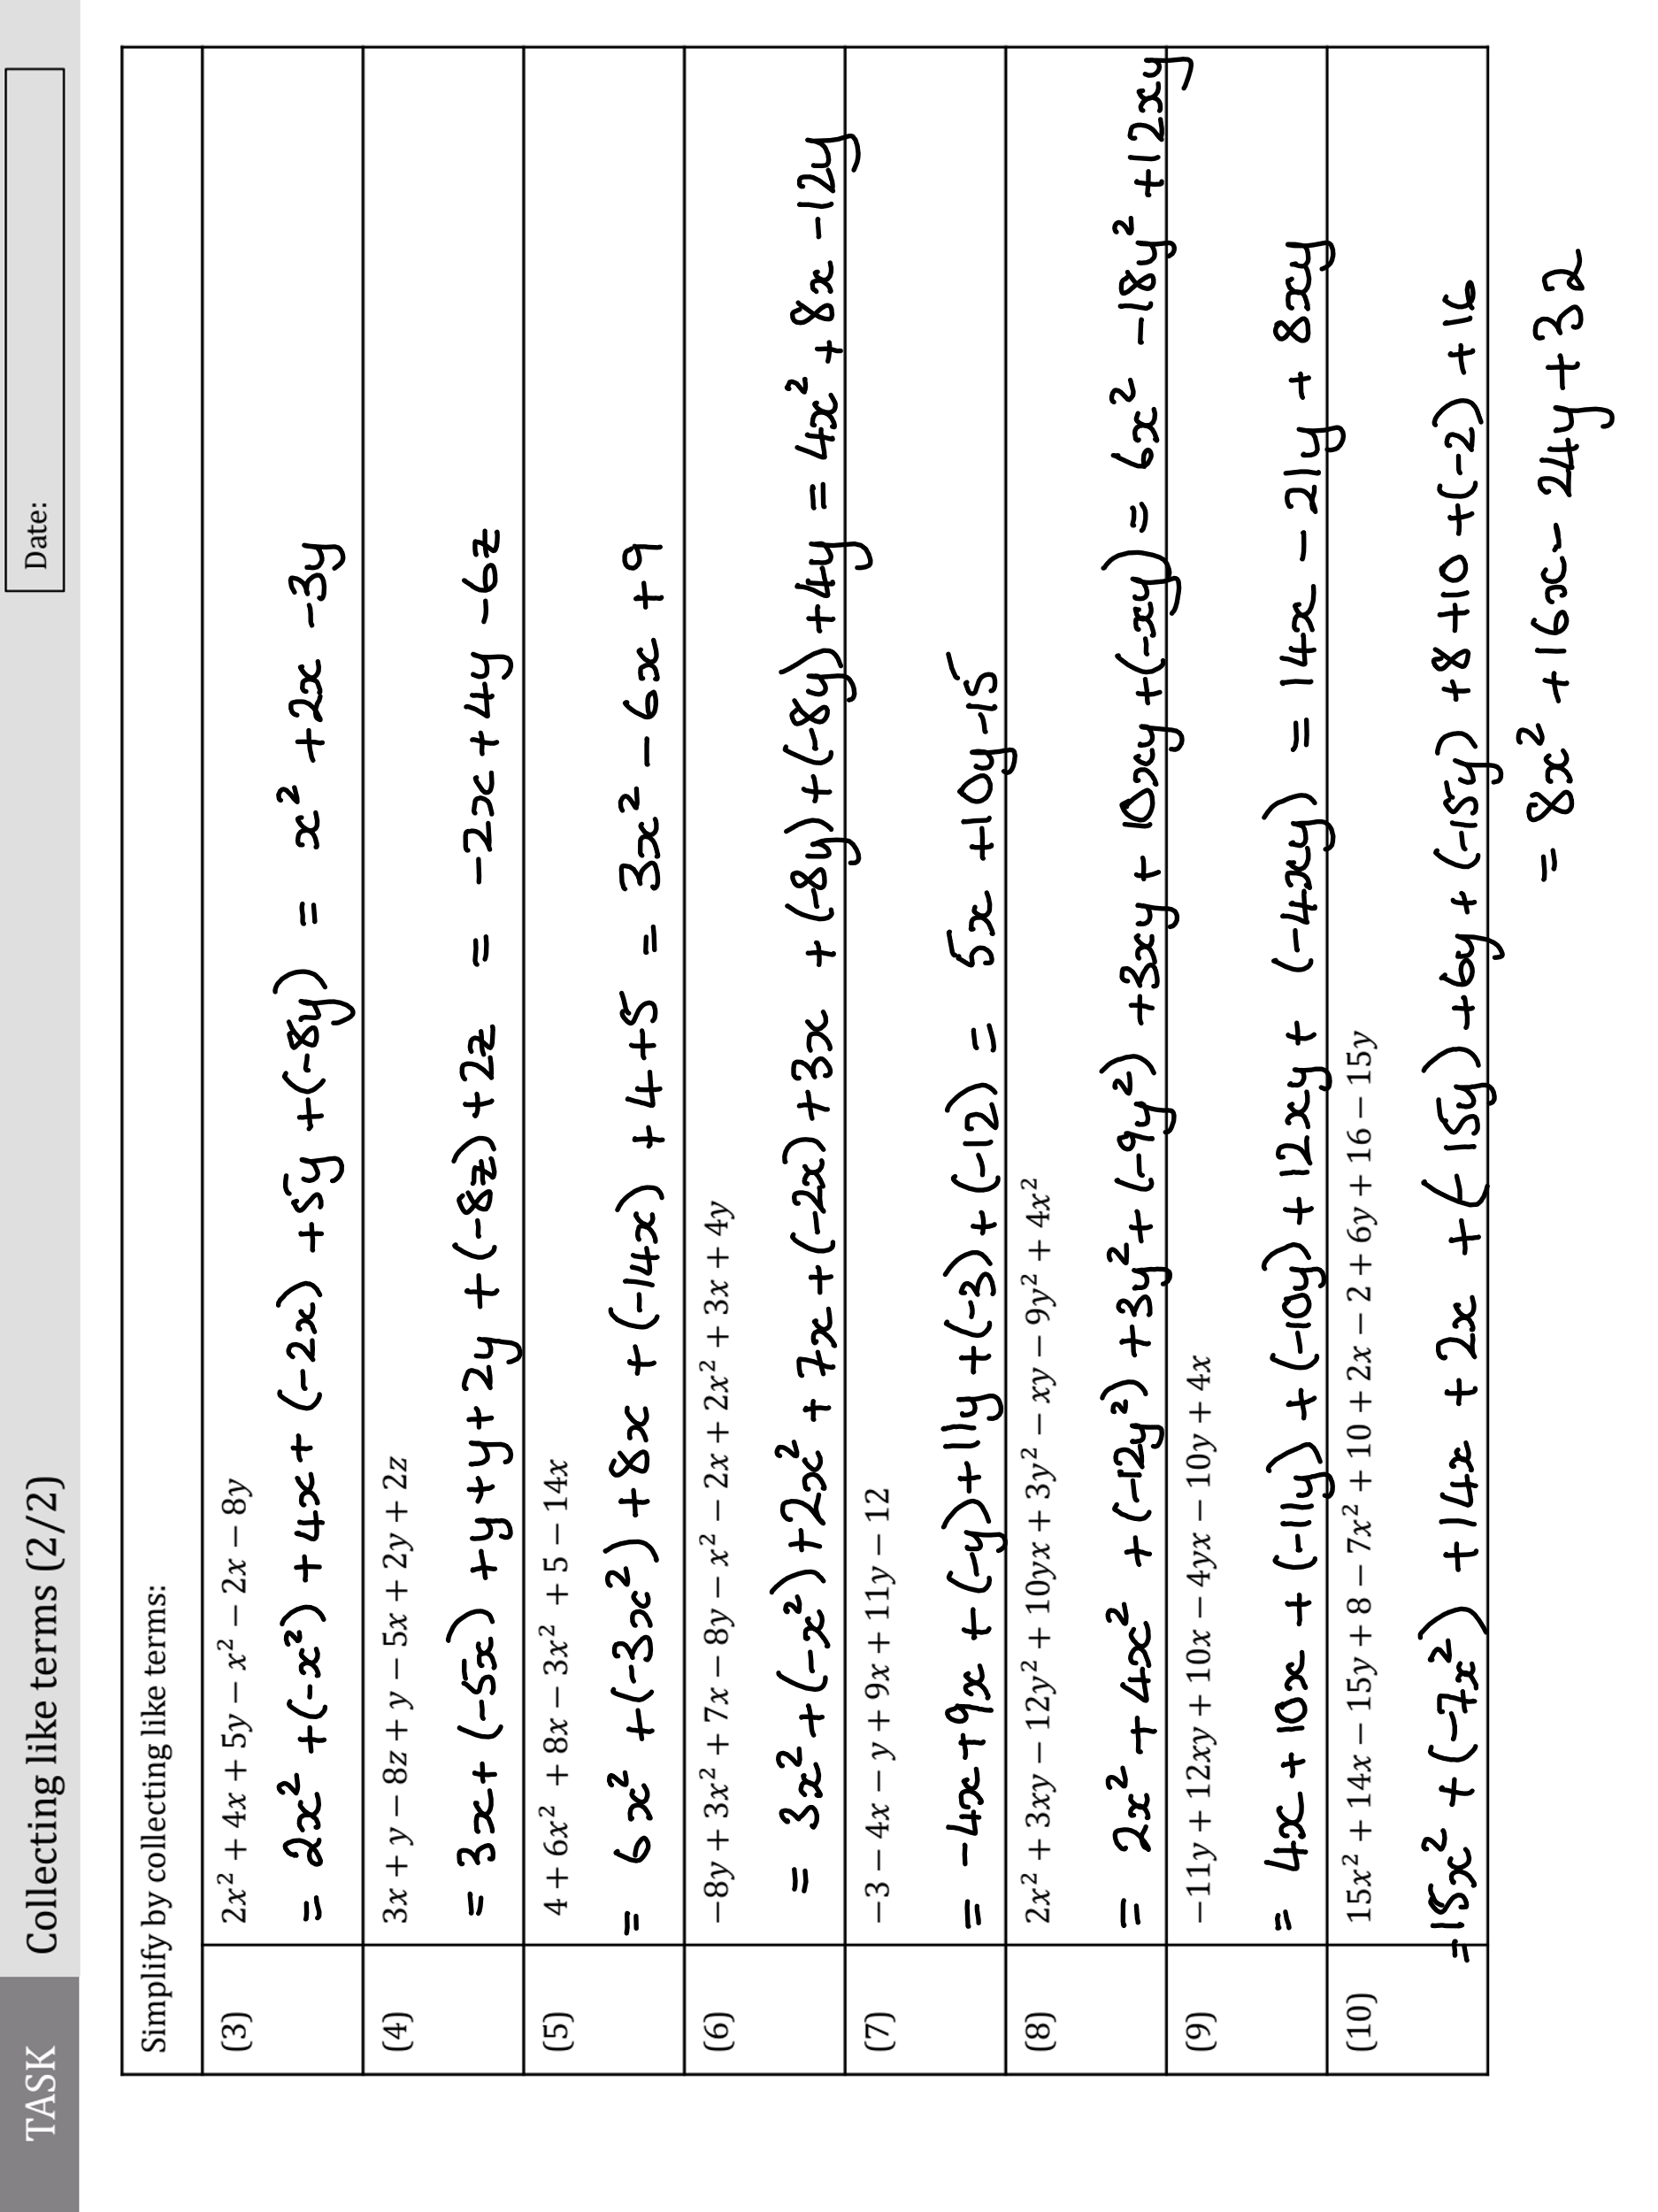 TASK Collecting like terms (2/2) Date:
Simplify by collecting like terms:
(3) 2x² + 4x + 5y − x² − 2x − 8y
= 2x² +(-x²) + 4x + (-2x) +5y +(-8y) = x² +2x -3y
(4) 3x + y − 8z + y − 5x + 2y + 2z
= 3x + (-5x) +y +y + 2y + (-8z) +2z = -2x +4y -6z
(5) 4 + 6x² + 8x − 3x² + 5 − 14x
= 6x² +(-3x²) +8x + (-14x) +4+5 = 3x² - 6x +9
(6) −8y + 3x² + 7x − 8y − x² − 2x + 2x² + 3x + 4y
= 3x² +(-x²) +2x² + 7x +(-2x) +3x + (-8y) +(-8y) +4y = 4x² +8x -12y
(7) −3 − 4x − y + 9x + 11y − 12
= -4x +9x + (-y) +11y +(-3) + (-12) = 5x +10y -15
(8) 2x² + 3xy − 12y² + 10yx + 3y² − xy − 9y² + 4x²
= 2x² +4x² +(-12y²) +3y² + (-9y²) +3xy + 10xy +(-xy) = 6x² -18y² +12xy
(9) −11y + 12xy + 10x − 4yx − 10y + 4x
= 4x +10x + (-11y) + (-10y) +12xy + (-4xy) = 14x - 21y + 8xy
(10) 15x² + 14x − 15y + 8 − 7x² + 10 + 2x − 2 + 6y + 16 − 15y
=15x² + (-7x²) +14x + 2x +(-15y) +6y + (-15y) +8 +10 +(-2) +16
= 8x² +16x - 24y +32